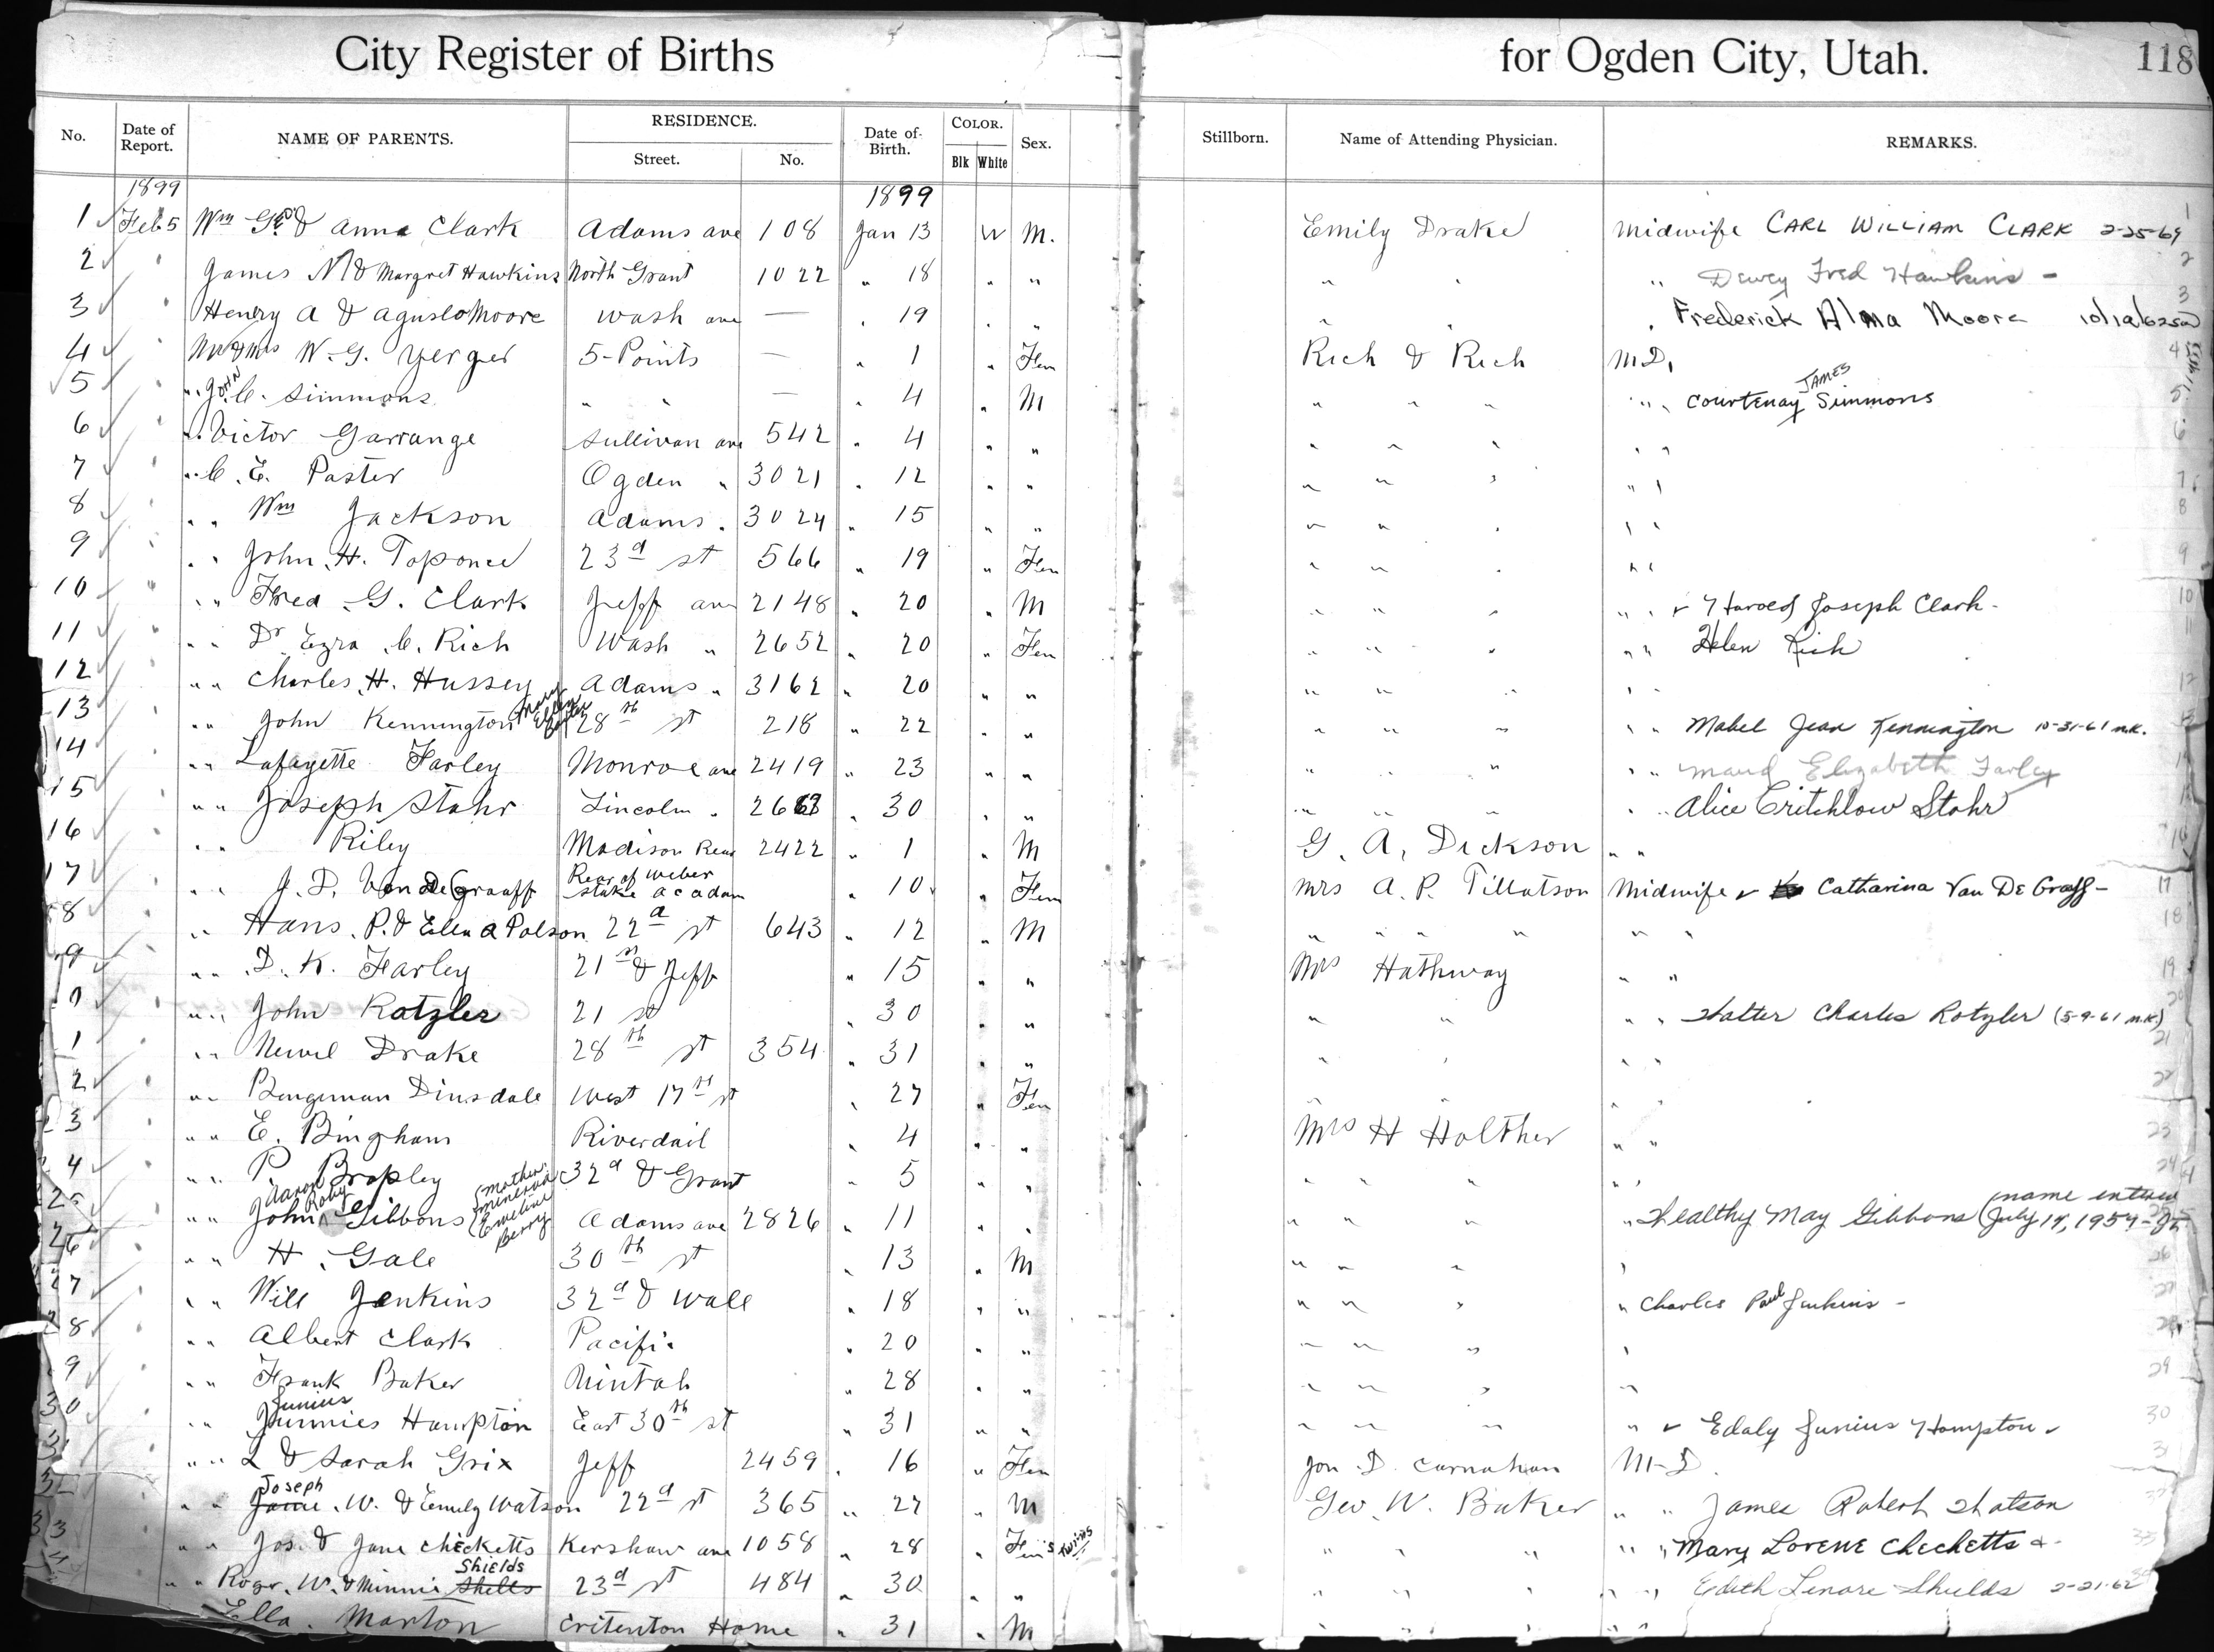 City Register of Births for Ogden City, Utah. 118
No. Date of Report. NAME OF PARENTS. RESIDENCE. Street. No. Date of Birth. COLOR. Blk White Sex. Stillborn. Name of Attending Physician. REMARKS.
1899 1899
1 Feb 5 Wm G. & Anna Clark Adams ave 108 Jan 13 W M. Emily Drake Midwife CARL WILLIAM CLARK 2-25-69 1
2 " James N & Margret Hawkins North Grant 1022 " 18 " " " " " Dewey Fred Hawkins - 2
3 " Henry A & Agusto Moore Wash ave — " 19 " " " " " Frederick Alma Moore 3
4 " Mr & Mrs W. G. Yerger 5-Points — " 1 " Fem Rich & Rich M.D. 4
5 " " John C. Simmons " " — " 4 " M " " " " " Courtenay JAMES Simmons 5
6 " " Victor Garrange Sullivan ave 542 " 4 " " " " " " " 6
7 " " C. E. Paster Ogden " 3021 " 12 " " " " " " " 7
8 " " " Wm Jackson Adams " 3024 " 15 " " " " " " " 8
9 " " " John H. Toponce 23d st 566 " 19 " Fem " " " " " 9
10 " " " Fred G. Clark Jeff ave 2148 " 20 " M " " " " " Harold Joseph Clark - 10
11 " " " Dr Ezra C. Rich Wash " 2652 " 20 " Fem " " " " " Helen Rich 11
12 " " " Charles H. Hussey Adams " 3162 " 20 " " " " " " " 12
13 " " " John Kennington Mary Ellen 28th st 218 " 22 " " " " " " " Mabel Jean Kennington 10-31-61 m.k. 13
14 " " " Lafayette Farley Monroe ave 2419 " 23 " " " " " " " Maud Elizabeth Farley 14
15 " " " Joseph Stohr Lincoln " 2663 " 30 " " " " " " " Alice Critchlow Stohr 15
16 " " " Riley Madison Rear 2422 " 1 " M G. A. Dickson " " 16
17 " " " J. D. Van De Graaff Rear of Weber stake acadam " 10 " Fem Mrs A. P. Tillotson Midwife Catharina Van De Graff - 17
18 " " Hans P. & Ellen A Polson 22d st 643 " 12 " M " " " " " " 18
9 " " " D. K. Farley 21st & Jeff " 15 " " Mrs Hathway " " 19
0 " " " John Rotzler 21 st " 30 " " " " " " Walter Charles Rotzler (5-9-61 m.k.) 20
1 " " " Newel Drake 28th st 354 " 31 " " " " " " 21
2 " " " Bengeman Dinsdale West 17th st " 27 " Fem " " " " 22
3 " " " E. Bingham Riverdail " 4 " " Mrs H Holther " " 23
4 " " " P. Bropley 32d & Grant " 5 " " " " " " " 24
25 " " " Aaron John Roby Gibbons (Mother Minerva Emeline Berry Adams ave 2826 " 11 " " " " " " Whealthy May Gibbons (name entered July 14, 1959 -
26 " " " H. Gale 30th st " 13 " M " " " " 26
27 " " " Will Jenkins 32d & Wall " 18 " " " " " " Charles Paul Jenkins - 27
28 " " " Albert Clark Pacific " 20 " " " " " "
9 " " " Frank Baker Uintah " 28 " " " " " " 29
30 " " " Junius Jumnies Hampton East 30th st " 31 " " " " " " Edaly Junius Hampton 30
31 " " L & Sarah Grix Jeff 2459 " 16 " Fem Jon D. Carnahan M.D. 31
32 " " Joseph W. & Emily Watson 22d st 365 " 27 " M Geo. W. Baker " " James Robert Watson
33 " " Jos. & Jane Checketts Kershaw ave 1058 " 28 " Fem's twins " " " " " Mary LORENE Checketts & - 33
4 " " Rosr. W. & Minnie Shields Shells 23d st 484 " 30 " " " " " " " Edith Lenore Shields 2-21-62
Ella Marton Critenton Home " 31 " M " " " " "